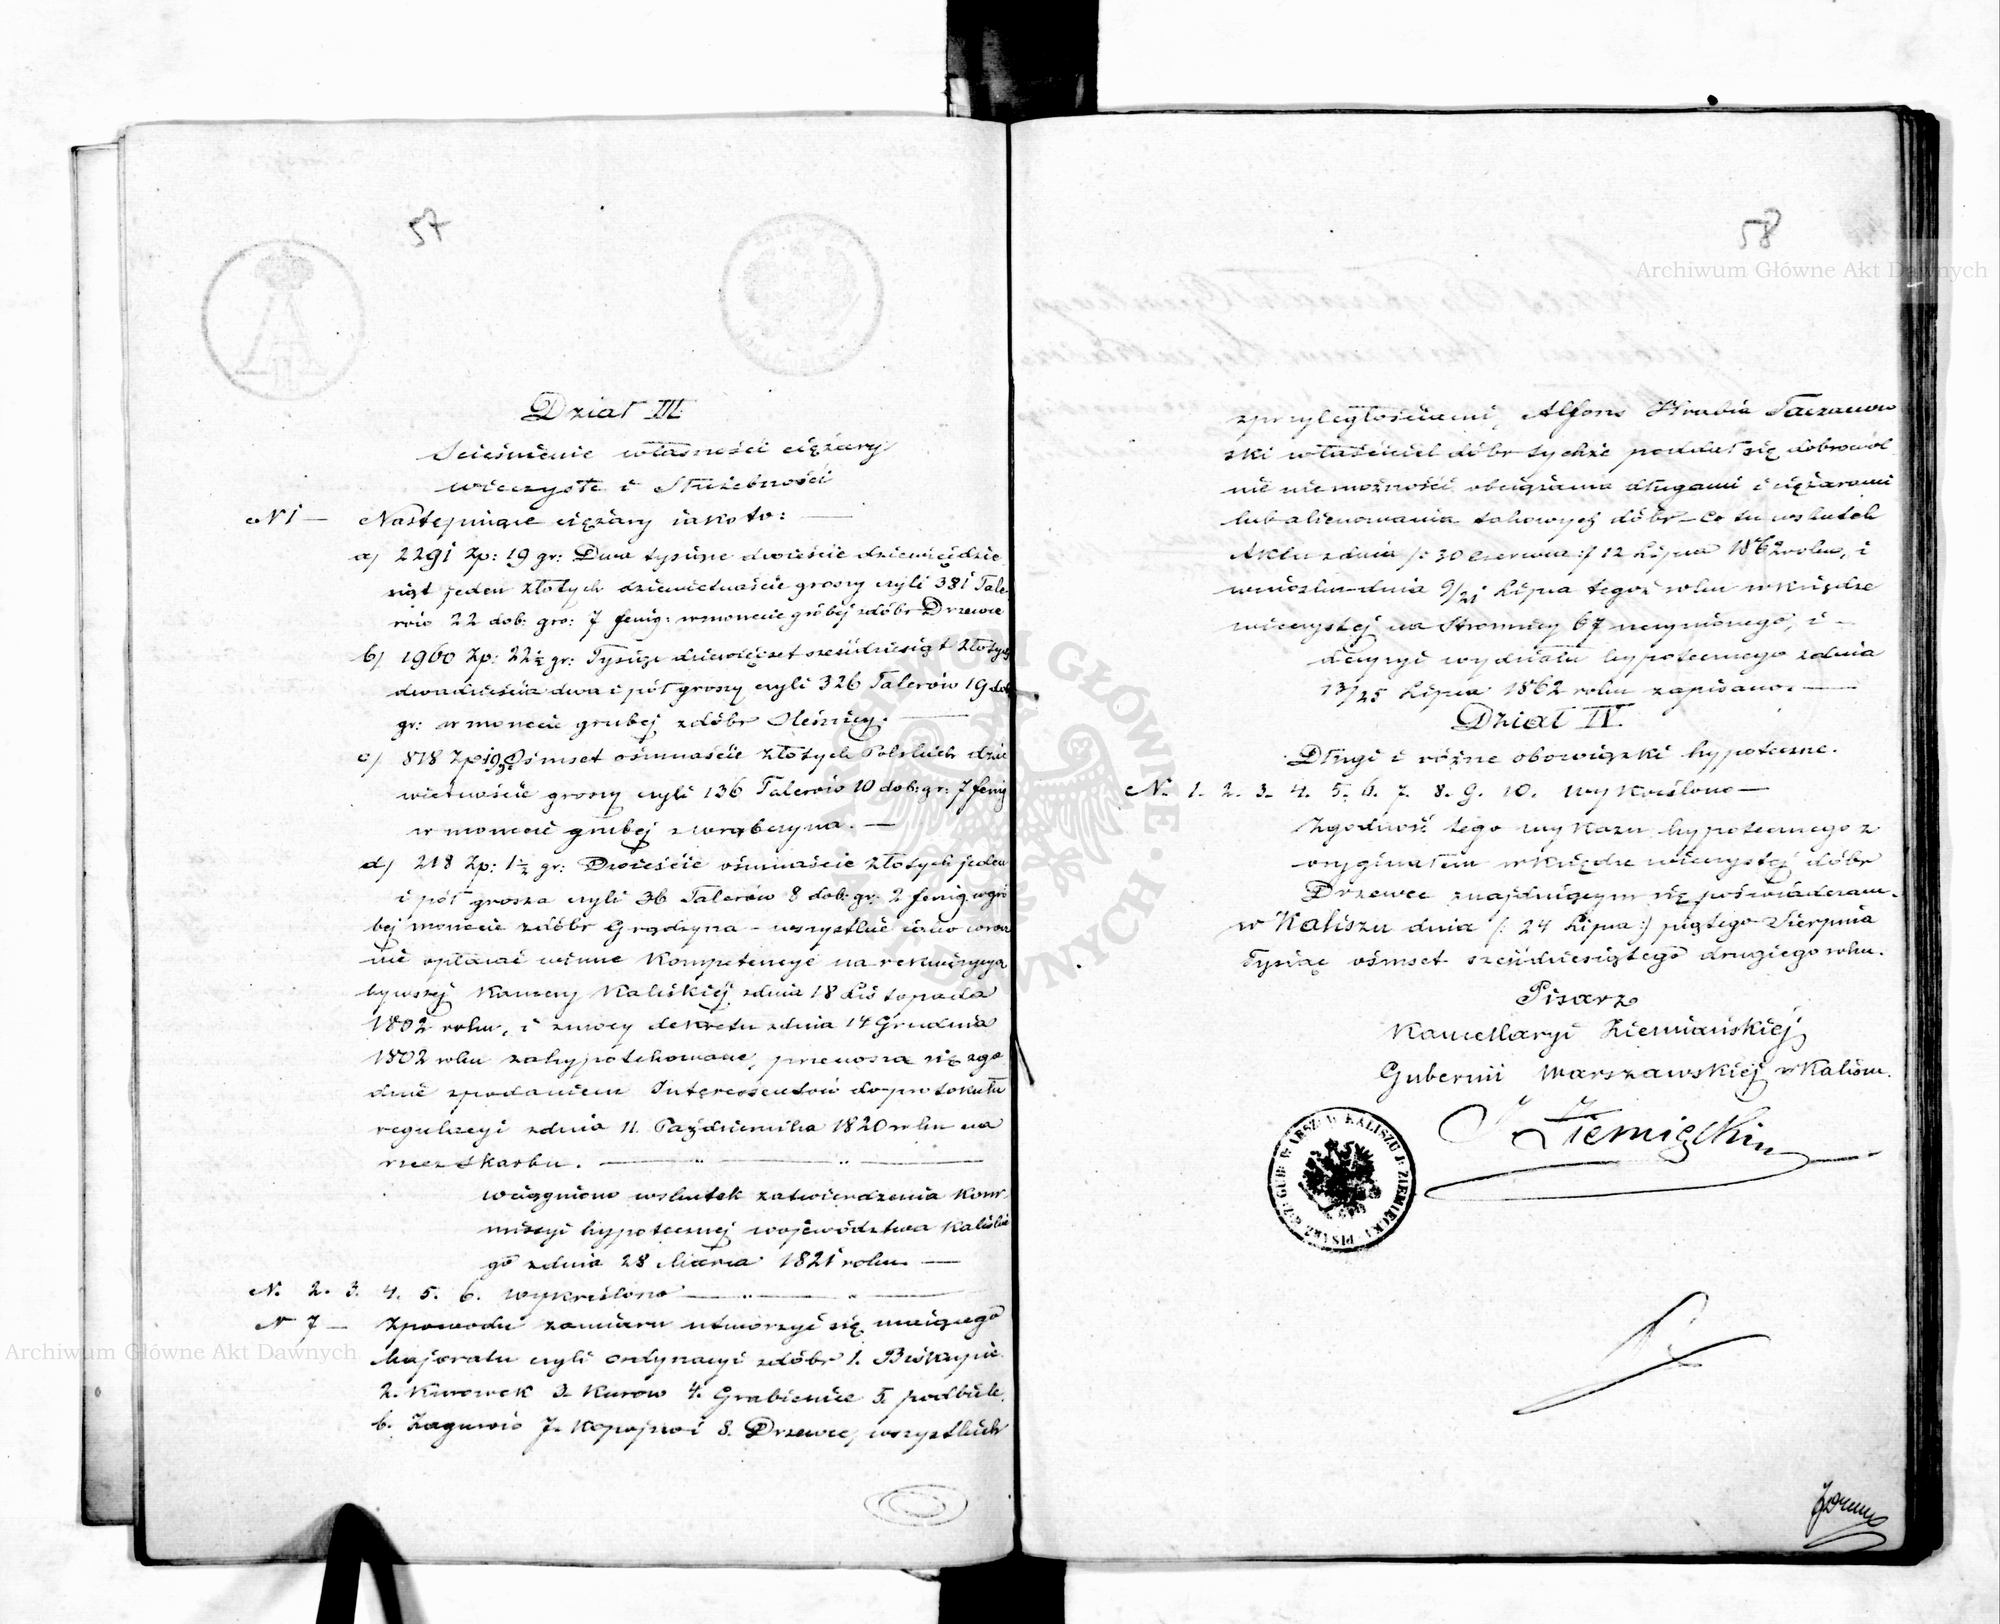 57
Dział III.
Ścieśnienie własności ciężary
wieczyste i Służebności
N 1 — Następujące ciężary jako to: —
a) 2291 Zp: 19 gr: Dwa tysiące dwieście dziewiędzie
siąt jeden złotych dziewietnaście groszy czyli 381 Tale
rów 22 dob: gro: 7 fenig: w monecie gróbej z dóbr Drzewce
b) 1960 Zp: 22½ gr: Tysiąc dziewięćset sześćdziesiąt złotych
dwadzieścia dwa i pół groszy czyli 326 Talerów 19 dob
gr: w monecie grubej z dóbr Oleśnicy. —
c) 818 Zp: 19 gr: Ośmset ośmnaście złotych Polskich dzie
wietnaście groszy czyli 136 Talerów 10 dob: gr: 7 fenig
w monecie grubej z Wrąbczyna. —
d) 218 Zp: 1½ gr: Dwieście ośmnaście złotych jeden
i pół grosza czyli 36 Talerów 8 dob: gr: 2 fenig. w gró
bej monecie z dóbr Grądzyna – wszystkie jako corocz
nie opłacać winne Kompetencye na rekwizycya
bywszej Kamery Kaliskiej z dnia 18 Listopada
1802 roku, i z mocy dekretu z dnia 14 Grudnia
1802 roku zahypotekowane, przenoszą się zgo
dnie z podaniem Interesentów do protokułu
regulacyi z dnia 11. Października 1820 roku na
rzecz Skarbu. —
wciągniono wskutek zatwierdzenia Kom
missyi hypotecznej województwa Kaliskie
go z dnia 28 Marca 1821 roku. —
N. 2. 3. 4. 5. 6. wykreślono —
N 7 — Z powodu zamiaru utworzyć się mającego
Majoratu czyli ordynacyi z dóbr 1. Biskupie
2. Kurowek 3. Kurow 4. Grabienice 5. podbiele
6. Zagurow 7. Kopojno i 8. Drzewce, wszystkich
58
z przyległościami, Alfons Hrabia Taczanow
ski właściciel dóbr tychże poddał się dobrowol
nie niemożności obciążania długami i ciężarami
lub alienowania takowych dóbr – Co tu wskutek
Aktu z dnia /: 30 Czerwca :/ 12 Lipca 1862 roku, i
wniosku dnia 9/21 Lipca tegoż roku w księdze
wieczystej na Stronnicy 67 uczynionego, i —
decyzyi wydziału hypotecznego z dnia
13/25 Lipca 1862 roku zapisano. —
Dział IV.
Długi i różne obowiązki hypoteczne.
N. 1. 2. 3. 4. 5. 6. 7. 8. 9. 10. wykreślono —
Zgodność tego wykazu hypotecznego z
oryginałem w księdze wieczystej dóbr
Drzewce znajdującym się poświadczam.
w Kaliszu dnia /: 24 Lipca :/ piątego Sierpnia
Tysiąc ośmset sześćdziesiątego drugiego roku.
Pisarz
Kancellaryi Ziemiańskiej
Gubernii Warszawskiej w Kaliszu.
J. Ziemięckiu
Archiwum Główne Akt Dawnych
Archiwum Główne Akt Dawnych